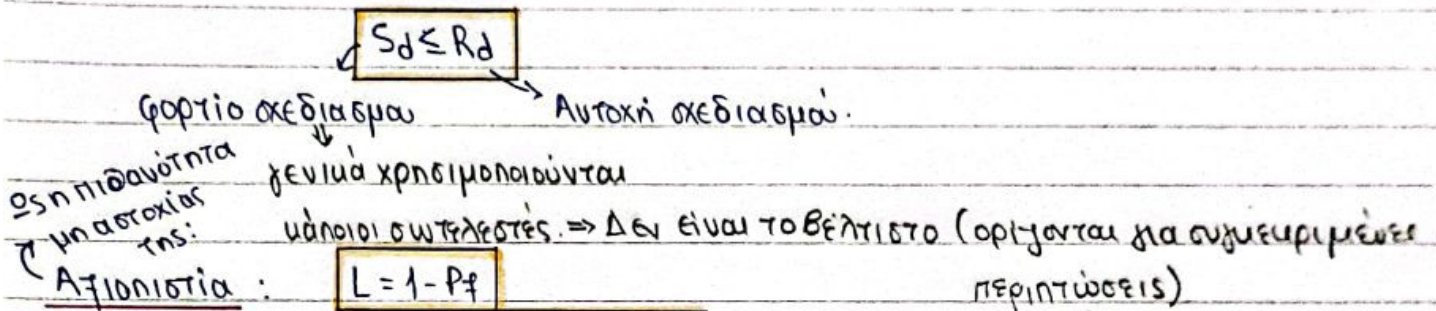 Sd ≤ Rd
φορτίο σχεδιασμου Αντοχή σχεδιασμού.
γενικά χρησιμοποιούνται
κάποιοι συντελεστές. => Δεν είναι το βέλτιστο (ορίζονται για συγκεκριμένες
περιπτώσεις)
Ως η πιθανότητα
μη αστοχίας
της:
Αξιοπιστία : L = 1 - Pf